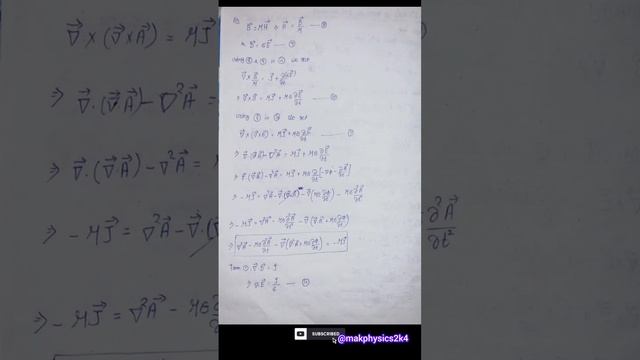 B⃗ = μH⃗ ⇒ H⃗ = B⃗/μ —— ⑧
& D⃗ = εE⃗ —— ⑨
Using ⑧ & ⑨ in ④ we get
∇ × B⃗/μ = J⃗ + ∂(εE⃗)/∂t
⇒ ∇×B⃗ = μJ⃗ + με ∂E⃗/∂t
we get
∇⃗×(∇⃗×A⃗) = μJ⃗ + με ∂E⃗/∂t
⇒ ∇⃗(∇⃗·A⃗) - ∇²A⃗ = μJ⃗ + με ∂E⃗/∂t
⇒ ∇⃗(∇⃗·A⃗) - ∇²A⃗ = μJ⃗ + με ∂/∂t [-∇⃗φ - ∂A⃗/∂t]
⇒ -μJ⃗ = ∇²A⃗ - ∇⃗(∇⃗·A⃗) - ∇⃗(με ∂φ/∂t) - με ∂²A⃗/∂t²
⇒ -μJ⃗ = ∇²A⃗ - με ∂²A⃗/∂t² - ∇⃗(∇⃗·A⃗ + με ∂φ/∂t)
⇒ ∇²A⃗ - με ∂²A⃗/∂t² - ∇⃗(∇⃗·A⃗ + με ∂φ/∂t) = -μJ⃗
From ①, ∇⃗·D⃗ = ρ
∇⃗×(∇⃗×A⃗) = μJ⃗
⇒ ∇⃗·(∇⃗A⃗) - ∇²A⃗ =
⇒ ∇⃗·(∇⃗A⃗) - ∇²A⃗ =
⇒ -μJ⃗ = ∇²A⃗ - ∇⃗·(
⇒ -μJ⃗ = ∇²A⃗ - με
∂²A⃗/∂t²
SUBSCRIBED
@makphysics2k4